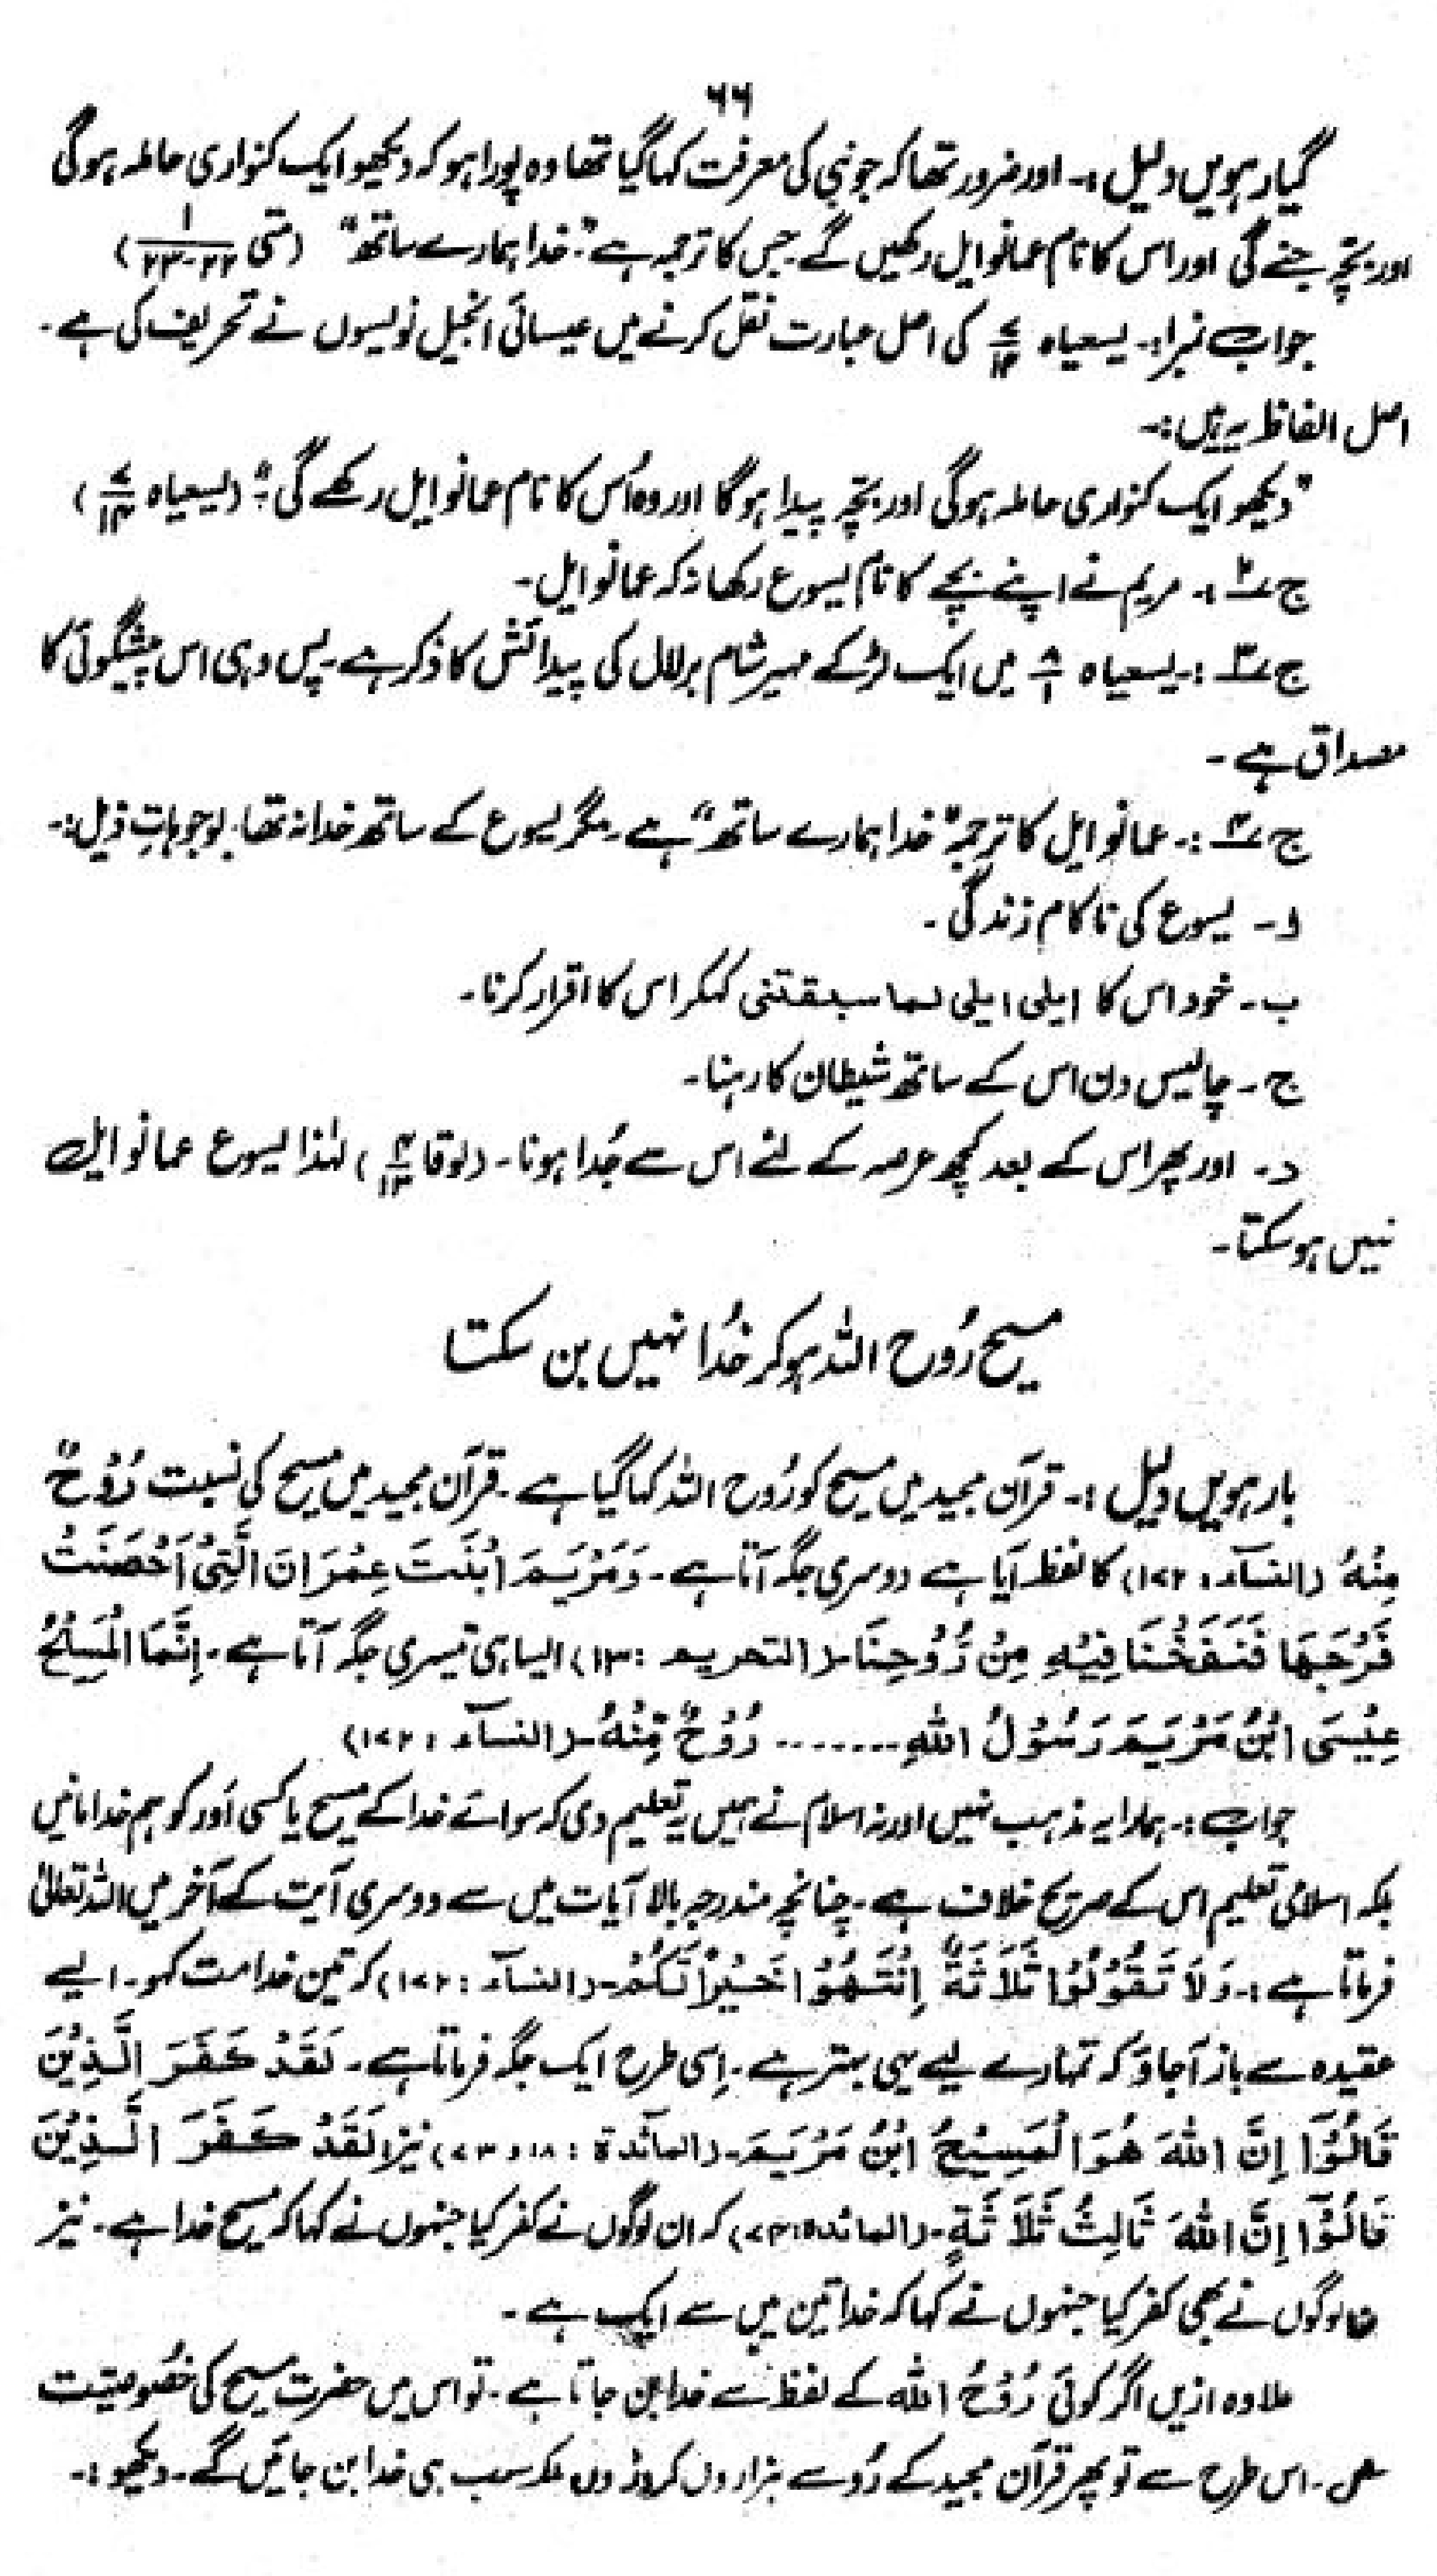 ۶۶
گیارہویں دلیل :۔ اور ضرور تھا کہ جو نبی کی معرفت کہا گیا تھا وہ پورا ہو کہ دیکھو ایک کنواری حاملہ ہوگی
اور بچّہ جنے گی اور اس کا نام عمانوایل رکھیں گے۔ جس کا ترجمہ ہے "خدا ہمارے ساتھ" (متی ۱/۲۲-۲۳)
جواب نمبر۱:۔ یسعیاہ ۷/۱۴ کی اصل عبارت نقل کرنے میں عیسائی انجیل نویسوں نے تحریف کی ہے۔
اصل الفاظ یہ ہیں:۔
"دیکھو ایک کنواری حاملہ ہوگی اور بچّہ پیدا ہوگا اور وہ اُس کا نام عمانوایل رکھے گی۔" (یسعیاہ ۷/۱۴)
ج ۲ :۔ مریم نے اپنے بچے کا نام یسوع رکھا نہ کہ عمانوایل۔
ج ۳ :۔ یسعیاہ ۸/۱ میں ایک لڑکے مہیر شام برلال کی پیدائش کا ذکر ہے۔ پس وہی اس پیشگوئی کا
مصداق ہے۔
ج ۴ :۔ عمانوایل کا ترجمہ "خدا ہمارے ساتھ" ہے۔ مگر یسوع کے ساتھ خدا نہ تھا۔ بوجوہاتِ ذیل:۔
ا۔ یسوع کی ناکام زندگی۔
ب۔ خود اس کا ایلی ایلی لما سبقتنی کہکر اس کا اقرار کرنا۔
ج۔ چالیس دن اس کے ساتھ شیطان کا رہنا۔
د۔ اور پھر اس کے بعد کچھ عرصہ کے لئے اس سے جُدا ہونا۔ (لوقا ۴/۱۳) لہٰذا یسوع عمانوایل
نہیں ہو سکتا۔
مسیح رُوح اللہ ہو کر خُدا نہیں بن سکتا
بارہویں دلیل :۔ قرآن مجید میں مسیح کو رُوح اللہ کہا گیا ہے۔ قرآن مجید میں مسیح کی نسبت رُوْحٌ
مِنْهُ (النسآء : ۱۷۲) کا لفظ آیا ہے دوسری جگہ آتا ہے۔ وَمَرْيَمَ ابْنَتَ عِمْرَانَ الَّتِيْ اَحْصَنَتْ
فَرْجَهَا فَنَفَخْنَا فِيْهِ مِنْ رُّوْحِنَا۔ (التحریم : ۱۳) ایسا ہی تیسری جگہ آتا ہے۔ اِنَّمَا الْمَسِيْحُ
عِيْسَى ابْنُ مَرْيَمَ رَسُوْلُ اللهِ ....... رُوْحٌ مِّنْهُ۔ (النسآء : ۱۷۲)
جواب :۔ ہمارا یہ مذہب نہیں اور نہ اسلام نے ہمیں یہ تعلیم دی کہ سوائے خدا کے مسیح یا کسی اَور کو ہم خدا مانیں
بلکہ اسلامی تعلیم اس کے صریح خلاف ہے۔ چنانچہ مندرجہ بالا آیات میں سے دوسری آیت کے آخر میں اللہ تعالیٰ
فرماتا ہے :۔ وَلَا تَقُوْلُوْا ثَلَاثَةٌ اِنْتَهُوْا خَيْرًا لَّكُمْ۔ (النسآء : ۱۷۲) کہ تین خدا مت کہو۔ ایسے
عقیدہ سے باز آجاؤ کہ تمہارے لیے یہی بہتر ہے۔ اِسی طرح ایک جگہ فرماتا ہے۔ لَقَدْ كَفَرَ الَّذِيْنَ
قَالُوْٓا اِنَّ اللهَ هُوَ الْمَسِيْحُ ابْنُ مَرْيَمَ۔ (المآئدة : ۱۸ ، ۷۳) نیز لَقَدْ كَفَرَ الَّذِيْنَ
قَالُوْٓا اِنَّ اللهَ ثَالِثُ ثَلَاثَةٍ۔ (المائدہ: ۷۴) کہ ان لوگوں نے کفر کیا جنہوں نے کہا کہ مسیح خدا ہے۔ نیز
لوگوں نے بھی کفر کیا جنہوں نے کہا کہ خدا تین میں سے ایک ہے۔
علاوہ ازیں اگر کوئی رُوْحُ الله کے لفظ سے خدا بن جاتا ہے۔ تو اس میں حضرت مسیح کی خصُوصیّت
اس طرح سے تو پھر قرآن مجید کے رُو سے ہزاروں کروڑوں بلکہ سب ہی خدا بن جائیں گے۔ دیکھو :۔